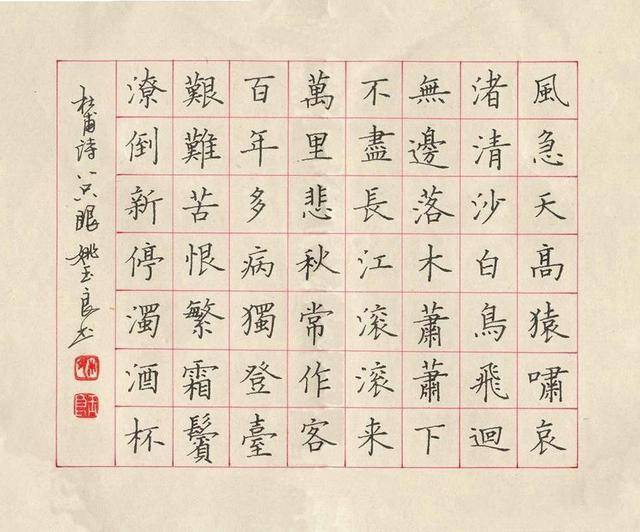 風急天高猿嘯哀
渚清沙白鳥飛迴
無邊落木蕭蕭下
不盡長江滾滾来
萬里悲秋常作客
百年多病獨登臺
艱難苦恨繁霜鬢
潦倒新停濁酒杯
杜甫诗 眼 姚玉良书